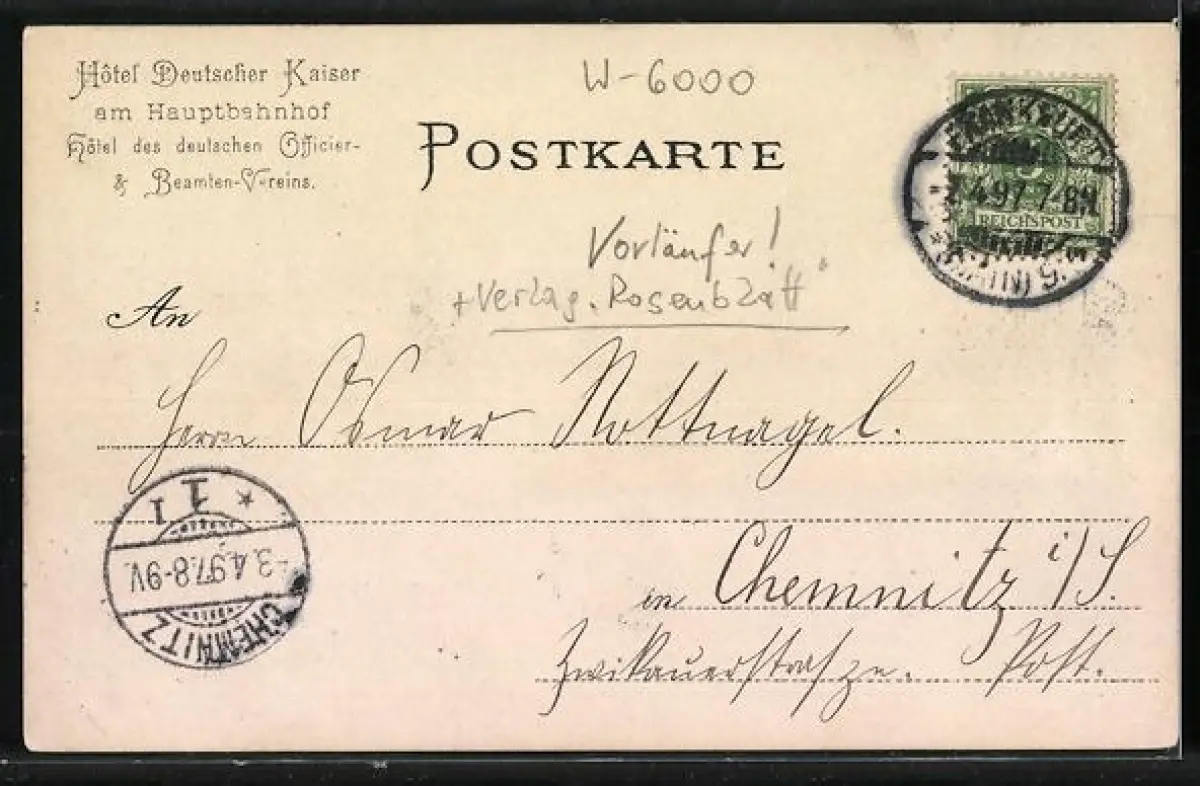 Hôtel Deutscher Kaiser
am Hauptbahnhof
Hôtel des deutschen Officier-
& Beamten-Vereins.
W-6000
POSTKARTE
FRANKFURT
4.97. 7-8N
REICHSPOST
(MAIN) 9.
Vorläufer!
+ Verlag. Rosenblatt"
An
Herrn Osmar Nottnagel.
* 1 1
-3.4.97.8-9V.
CHEMNITZ
in Chemnitz i/S.
Zwikauerstrasze. Post.